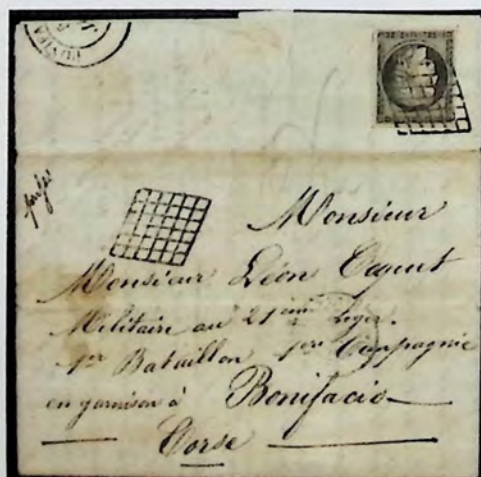 Monsieur
Monsieur Léon
Militaire au 21eme Leger.
1er Bataillon 1ere Compagnie
en garnison à Bonifacio
Corse